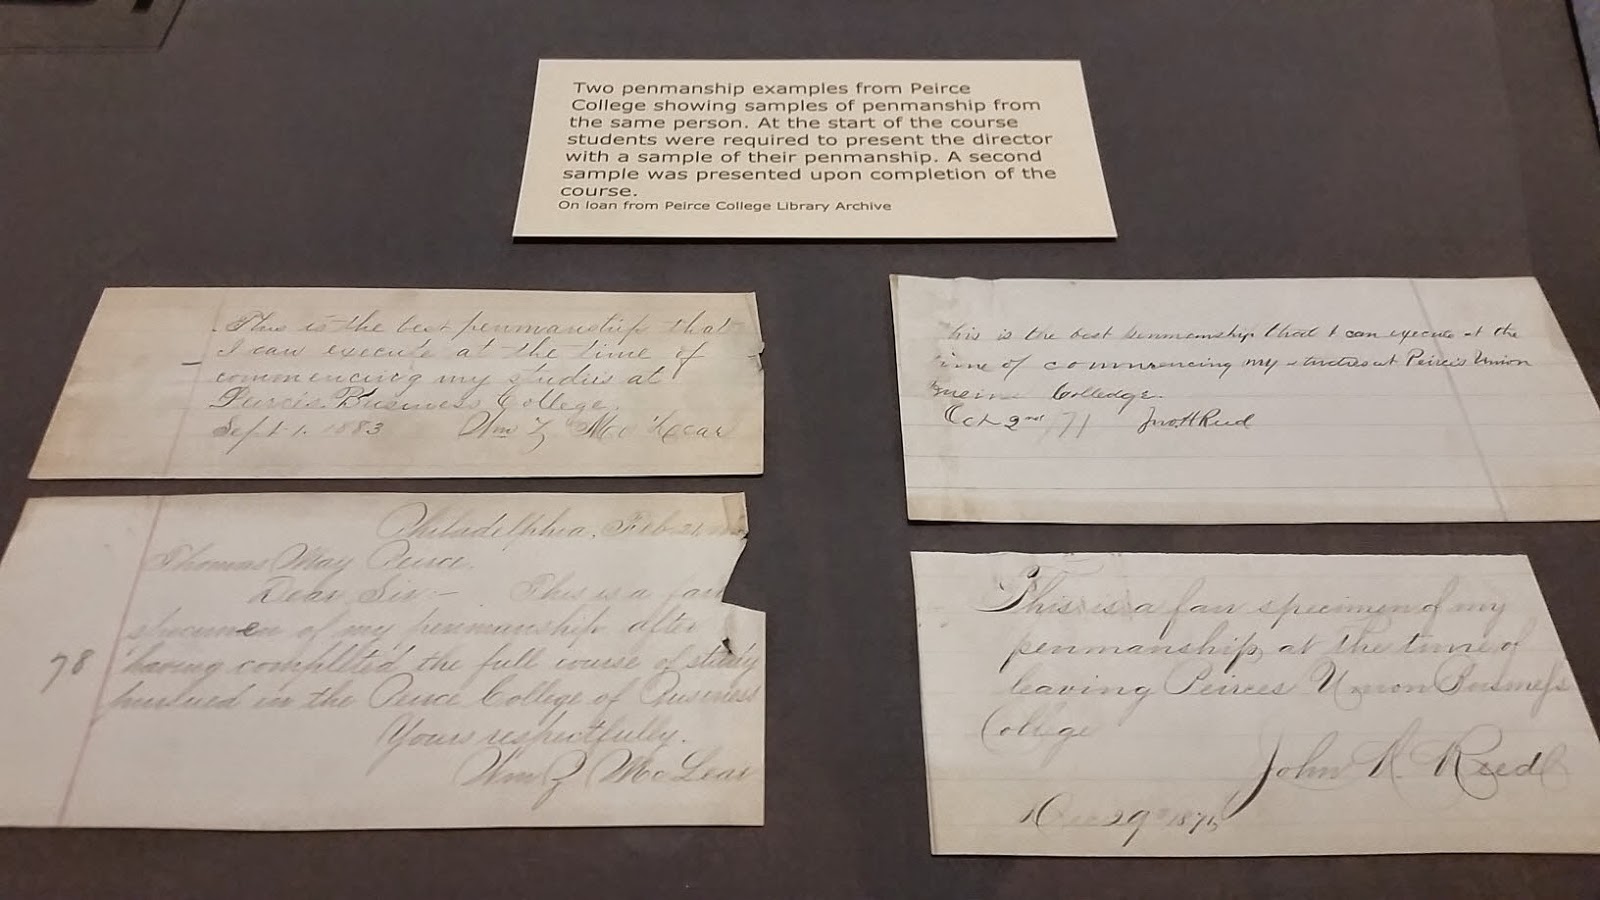 Two penmanship examples from Peirce
College showing samples of penmanship from
the same person. At the start of the course
students were required to present the director
with a sample of their penmanship. A second
sample was presented upon completion of the
course.
On loan from Peirce College Library Archive
This is the best penmanship that
I can execute at the time of
commencing my studies at
Peirce's Business College.
Sept. 1. 1883 Wm Z
Philadelphia, Feb. 21,
Thomas May Peirce.
Dear Sir:- This is a fair
specimen of my penmanship after
having completed the full course of study
pursued in the Peirce College of Business
Yours respectfully.
Wm Z McLear
78
his is the best penmanship that I can execute at the
time of commencing my studies at Peirce's Union
Colledge.
Oct 2nd /71 Jno H Reed
This is a fair specimen of my
penmanship at the time of
leaving Peirces Union Business
College
John H. Reed
Dec 29